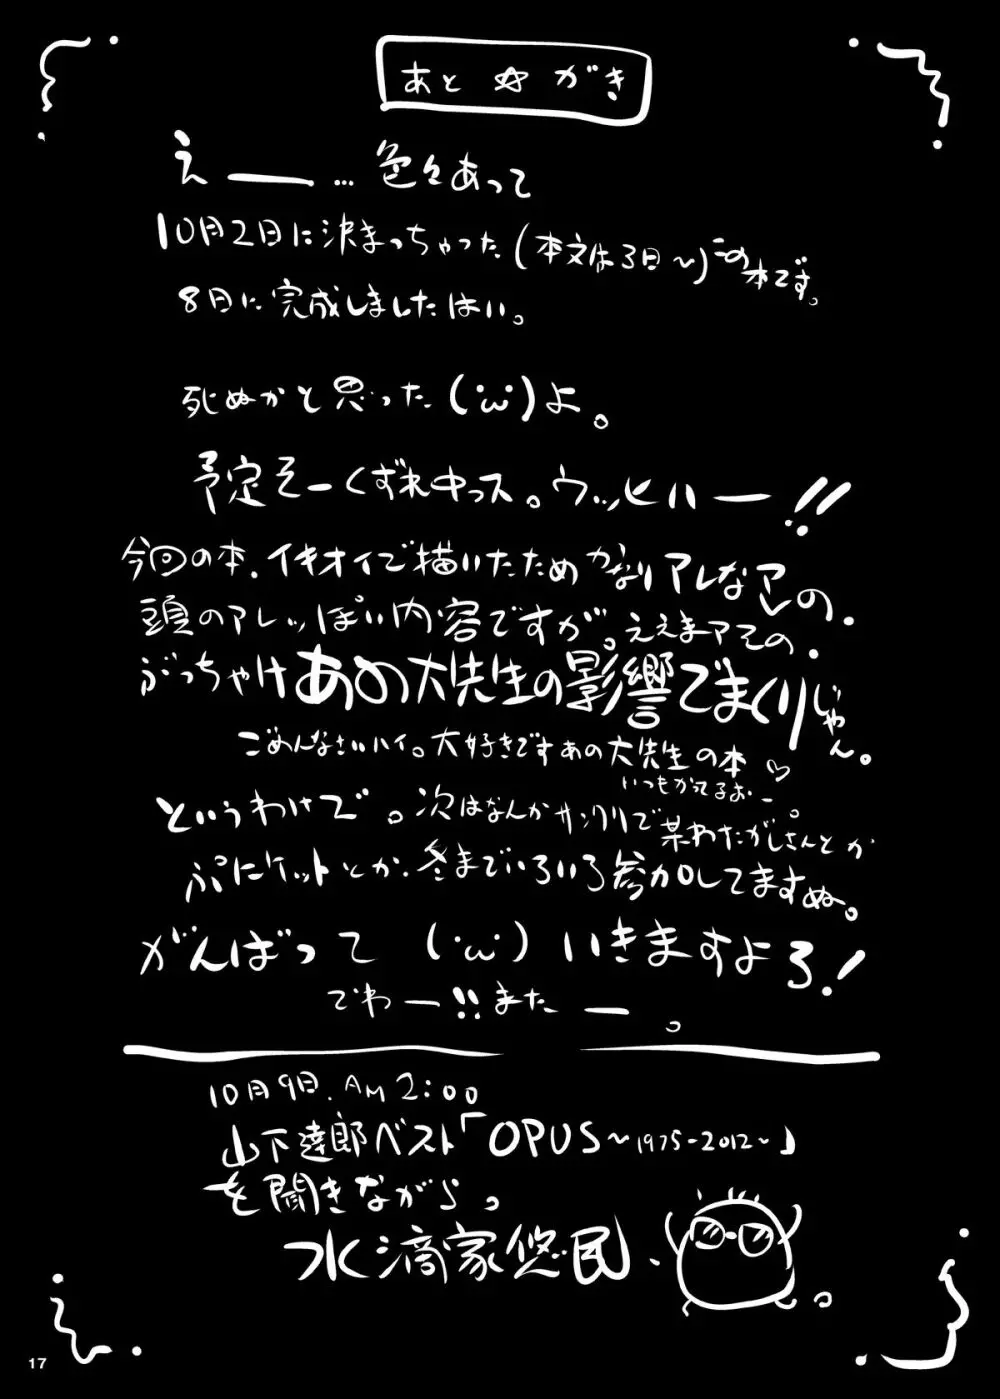 あと☆がき
えー…色々あって
10月2日に決まっちゃった(本文は3日〜)この本です。
8日に完成しましたはい。
死ぬかと思った(´・ω・`)よ。
予定そーくずれ中っス。ウッヒハー!!
今回の本、イキオイで描いたためかなりアレなアレの、
頭のアレっぽい内容ですが。ええまアその、
ぶっちゃけあの大先生の影響でまくりじゃん。
ごめんなさいハイ。大好きですあの大先生の本♡
いつもかってるおー。
というわけで。次はなんかサンクリで某わたがしさんとか
ぷにケットとか、冬までいろいろ参加してますぬ。
がんばって(´・ω・`)いきますよろ!
でわー!!またー。
10月9日.AM2:00
山下達郎ベスト「OPUS〜1975-2012〜」
を聞きながら。
水滴家悠民、
17